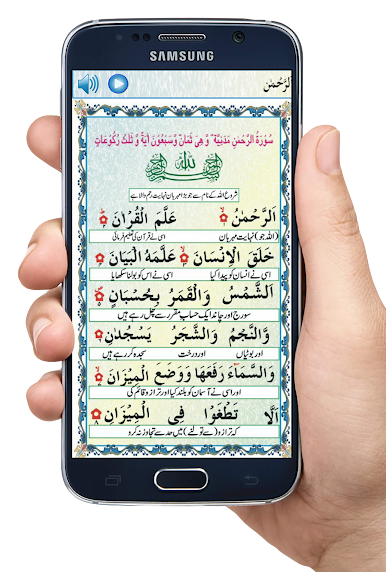 SAMSUNG
الرَّحْمٰن
سُوْرَةُ الرَّحْمٰنِ مَدَنِيَّةٌ وَّ هِيَ ثَمَانٌ وَّسَبْعُوْنَ اٰيَةً وَّ ثَلٰثُ رُكُوْعَاتٍ
بِسْمِ اللّٰهِ الرَّحْمٰنِ الرَّحِيْمِ
شروع اللہ کے نام سے جو بڑا مہربان نہایت رحم والا ہے
اَلرَّحْمٰنُ عَلَّمَ الْقُرْاٰنَ
(اللہ جو) نہایت مہربان اسی نے قرآن کی تعلیم فرمائی
خَلَقَ الْاِنْسَانَ عَلَّمَهُ الْبَيَانَ
اسی نے انسان کو پیدا کیا اسی نے اس کو بولنا سکھایا
اَلشَّمْسُ وَالْقَمَرُ بِحُسْبَانٍ
سورج اور چاند ایک حساب مقرر سے چل رہے ہیں
وَالنَّجْمُ وَالشَّجَرُ يَسْجُدٰنِ
اور بوٹیاں اور درخت سجدہ کر رہے ہیں
وَالسَّمَآءَ رَفَعَهَا وَوَضَعَ الْمِيْزَانَ
اور اسی نے آسمان کو بلند کیا اور ترازو قائم کی
اَلَّا تَطْغَوْا فِى الْمِيْزَانِ
کہ ترازو (سے تولنے) میں حد سے تجاوز نہ کرو